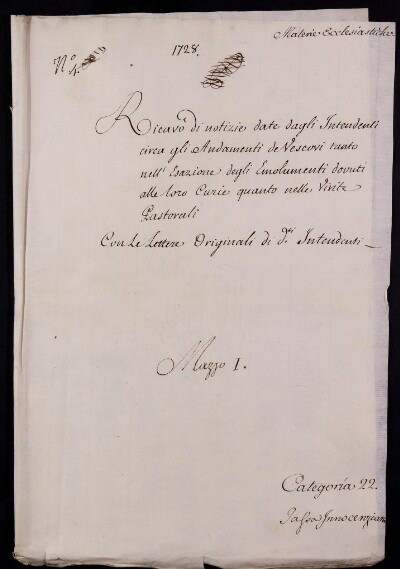 Materie Ecclesiastiche
1728.
N.º 4.
Ricavo di notizie date dagli Intendenti
circa gli Andamenti de Vescovi tanto
nell' Esazione degli Emolumenti dovuti
alle loro Curie quanto nelle Visite
Pastorali
Con le Lettere Originali di d.ti Intendenti
Mazzo I.
Categoria 22.
Tassa Innocenziana